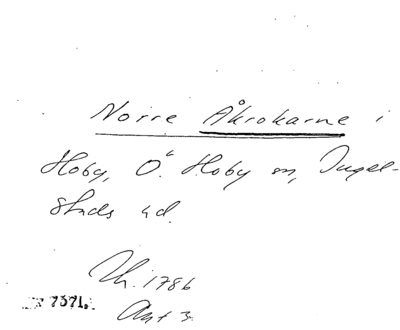 Norre Åkrokarne i
Hoby, Ö. Hoby sn, Ingel-
stads hd.
Lh. 1786
7371.
Akt 3